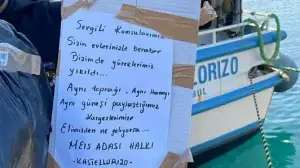 Sevgili Komşularımız
Sizin evlerinizle beraber
Bizimde yüreklerimiz
yıkıldı...
Aynı toprağı, Aynı Havayı
Aynı güneşi paylaştığımız
Kardeşlerimize
Elimizden ne geliyorsa...
MEIS ADASI HALKI
-KASTELLORIZO-
LORIZO
BUL